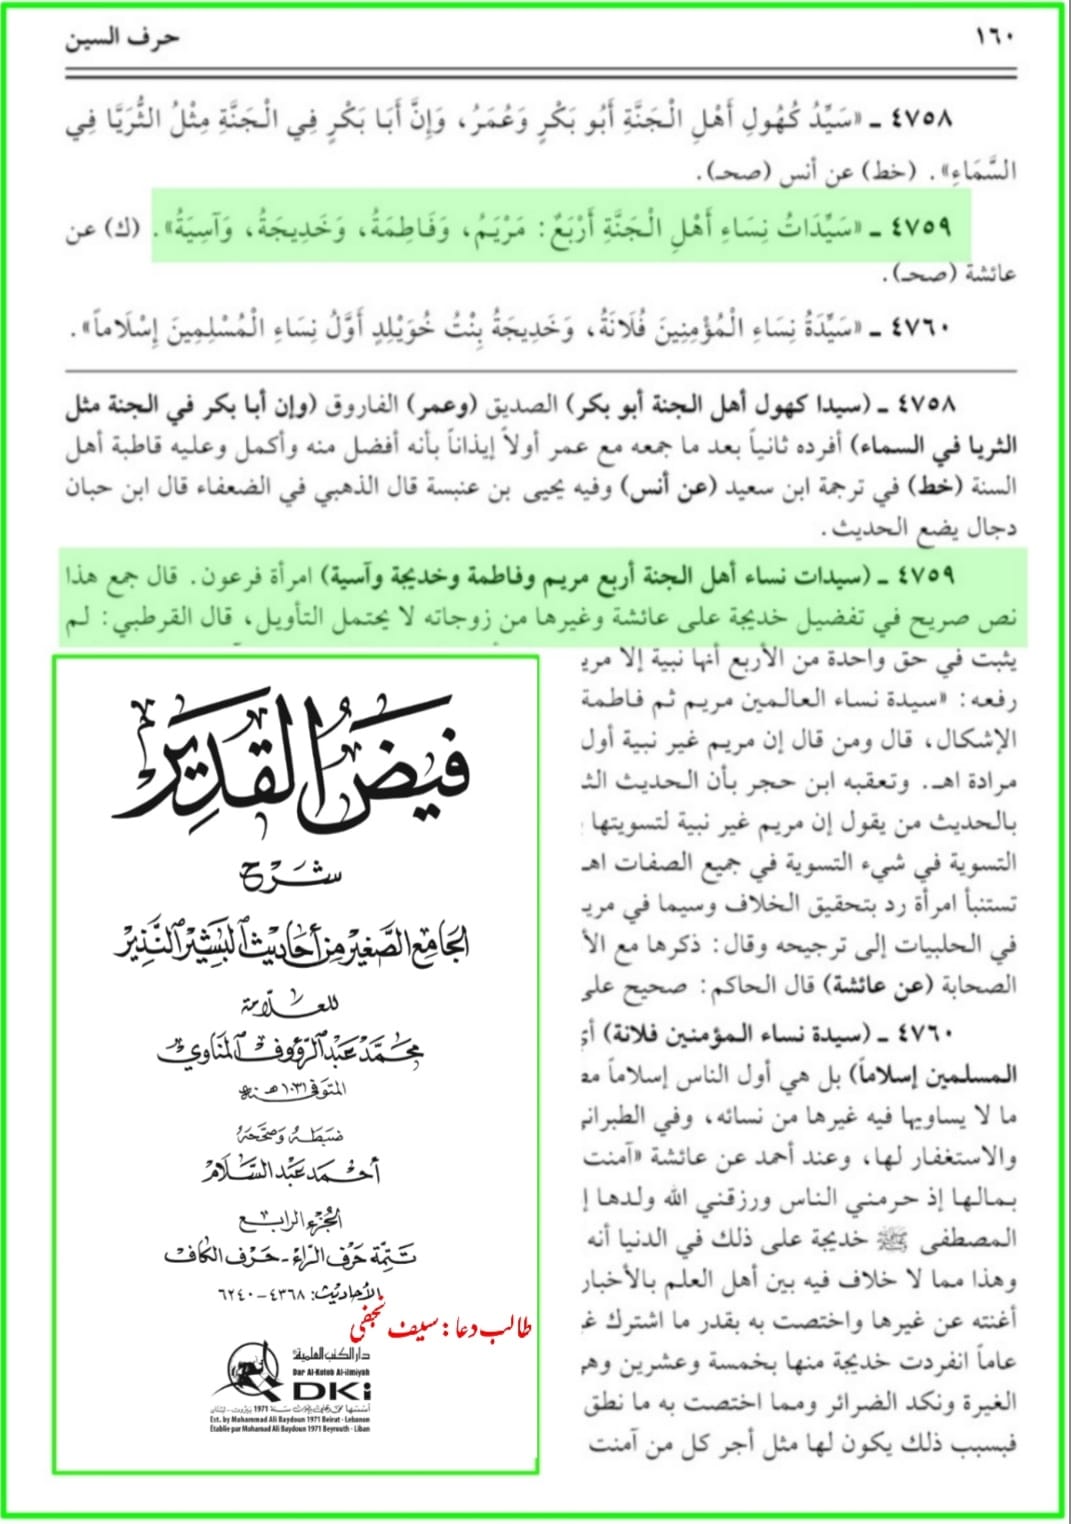 ١٦٠
حرف السين
٤٧٥٨ ـ «سَيِّدُ كُهُولِ أَهْلِ الْجَنَّةِ أَبُو بَكْرٍ وَعُمَرُ، وَإِنَّ أَبَا بَكْرٍ فِي الْجَنَّةِ مِثْلُ الثُّرَيَّا فِي
السَّمَاءِ». (خط) عن أنس (صحـ).
٤٧٥٩ ـ «سَيِّدَاتُ نِسَاءِ أَهْلِ الْجَنَّةِ أَرْبَعٌ: مَرْيَمُ، وَفَاطِمَةُ، وَخَدِيجَةُ، وَآسِيَةُ». (ك) عن
عائشة (صحـ).
٤٧٦٠ ـ «سَيِّدَةُ نِسَاءِ الْمُؤْمِنِينَ فُلَانَةُ، وَخَدِيجَةُ بِنْتُ خُوَيْلِدٍ أَوَّلُ نِسَاءِ الْمُسْلِمِينَ إِسْلَاماً».
٤٧٥٨ ـ (سيدا كهول أهل الجنة أبو بكر) الصديق (وعمر) الفاروق (وإن أبا بكر في الجنة مثل
الثريا في السماء) أفرده ثانياً بعد ما جمعه مع عمر أولاً إيذاناً بأنه أفضل منه وأكمل وعليه قاطبة أهل
السنة (خط) في ترجمة ابن سعيد (عن أنس) وفيه يحيى بن عنبسة قال الذهبي في الضعفاء قال ابن حبان
دجال يضع الحديث.
٤٧٥٩ ـ (سيدات نساء أهل الجنة أربع مريم وفاطمة وخديجة وآسية) امرأة فرعون. قال جمع هذا
نص صريح في تفضيل خديجة على عائشة وغيرها من زوجاته لا يحتمل التأويل، قال القرطبي: لم
يثبت في حق واحدة من الأربع أنها نبية إلا مري
رفعه: «سيدة نساء العالمين مريم ثم فاطمة
الإشكال، قال ومن قال إن مريم غير نبية أول
مرادة اهـ. وتعقبه ابن حجر بأن الحديث الث
بالحديث من يقول إن مريم غير نبية لتسويتها
التسوية في شيء التسوية في جميع الصفات اهـ
تستنبأ امرأة رد بتحقيق الخلاف وسيما في مري
في الحلبيات إلى ترجيحه وقال: ذكرها مع الأ
الصحابة (عن عائشة) قال الحاكم: صحيح على
٤٧٦٠ ـ (سيدة نساء المؤمنين فلانة) أي
المسلمين إسلاماً) بل هي أول الناس إسلاماً مط
ما لا يساويها فيه غيرها من نسائه، وفي الطبراني
والاستغفار لها، وعند أحمد عن عائشة «آمنت
بمالها إذ حرمني الناس ورزقني الله ولدها إ
المصطفى ﷺ خديجة على ذلك في الدنيا أنه
وهذا مما لا خلاف فيه بين أهل العلم بالأخبار
أغنته عن غيرها واختصت به بقدر ما اشترك غ
عاماً انفردت خديجة منها بخمسة وعشرين وهي
الغيرة ونكد الضرائر ومما اختصت به ما نطق
فبسبب ذلك يكون لها مثل أجر كل من آمنت
فيض القدير
شرح
الجامع الصغير من أحاديث البشير النذير
للعلامة
محمد عبد الرؤوف المناوي
المتوفى ١٠٣١ هـ
ضبطه وصححه
أحمد عبد السلام
الجزء الرابع
تتمة حرف الراء - حرف الكاف
الأحاديث: ٤٣٦٨ - ٦٢٤٠
طالب دعا: سیف نجفی
دار الكتب العلمية
Dar Al-Kotob Al-ilmiyah
DKi
أسسها محمد علي بيضون سنة 1971 بيروت - لبنان
Est. by Mohammad Ali Baydoun 1971 Beirut - Lebanon
Établie par Mohamad Ali Baydoun 1971 Beyrouth - Liban